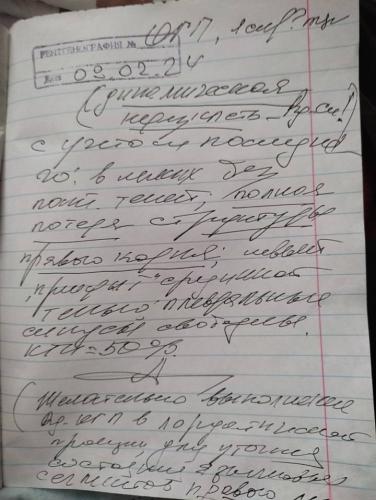 РЕНТГЕНОГРАФИЯ №
ОГП, 1 сн(?) тзв
Дата 09.02.24
(динамическая
нерезкость - Rg-сн!)
с учетом последне
го: в легких без
пат. теней; полная
потеря структуры
правого корня; левый
"прикрыт" срединной
тенью; плевральные
синусы свободны.
КТИ = 50%.
(Желательно выполнение
Rg-ОГП в лордотической
проекции для уточне
состояния
сегментов правого